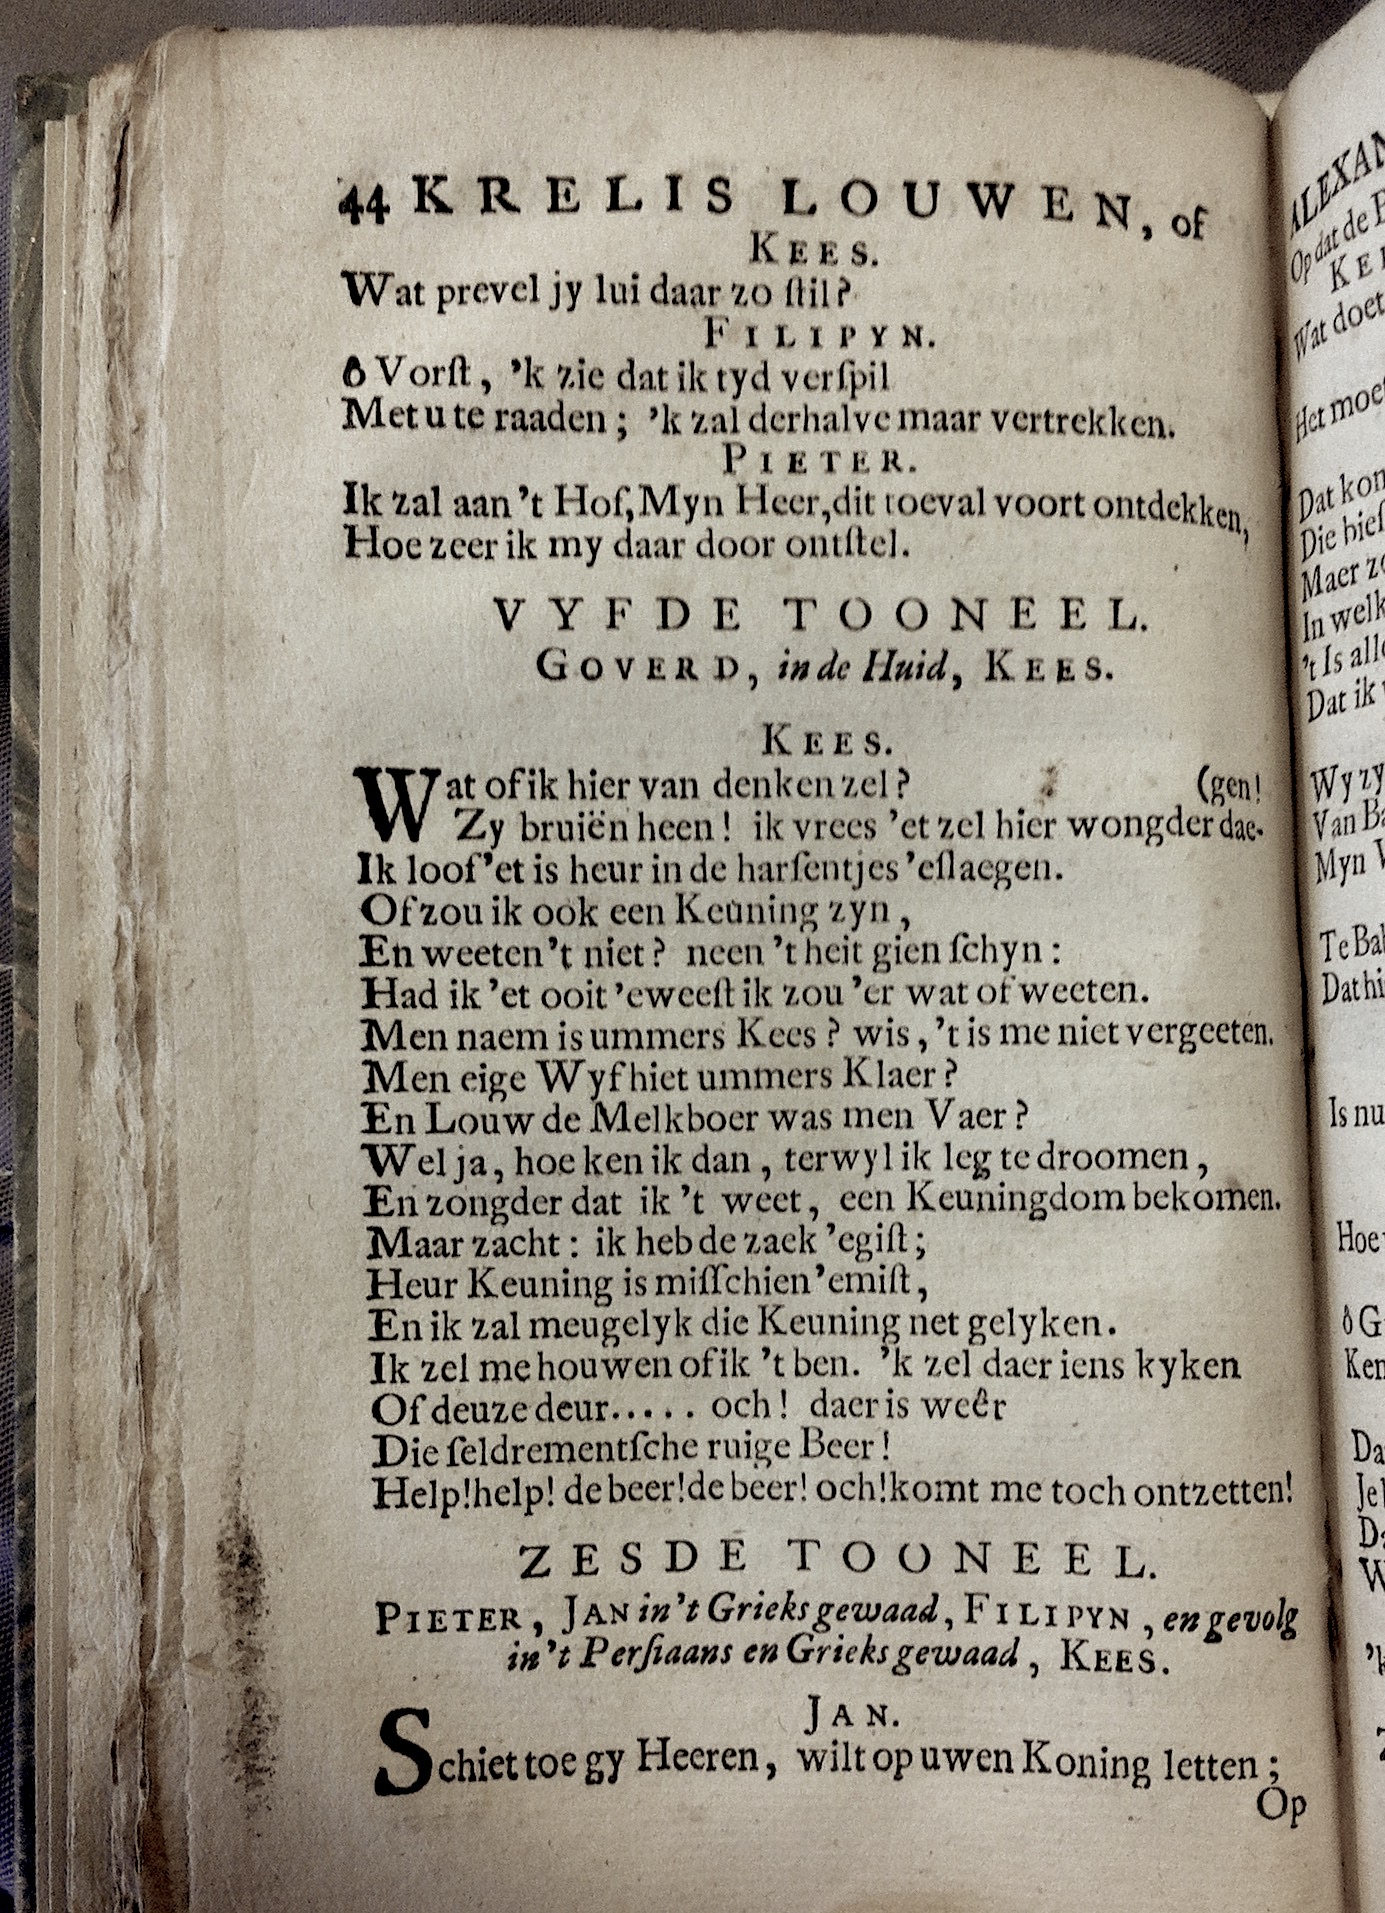 44 KRELIS LOUWEN, of
KEES.
Wat prevel jy lui daar zo ſtil?
FILIPYN.
ô Vorſt, 'k zie dat ik tyd verſpil
Met u te raaden; 'k zal derhalve maar vertrekken.
PIETER.
Ik zal aan 't Hof, Myn Heer, dit toeval voort ontdekken,
Hoe zeer ik my daar door ontſtel.
VYFDE TOONEEL.
GOVERD, in de Huid, KEES.
KEES.
Wat of ik hier van denken zel? (gen!
Zy bruiën heen! ik vrees 'et zel hier wongder dae-
Ik loof 'et is heur in de harſentjes 'eſlaegen.
Of zou ik ook een Keuning zyn,
En weeten 't niet? neen 't heit gien ſchyn:
Had ik 'et ooit 'eweeſt ik zou 'er wat of weeten.
Men naem is ummers Kees? wis, 't is me niet vergeeten.
Men eige Wyf hiet ummers Klaer?
En Louw de Melkboer was men Vaer?
Wel ja, hoe ken ik dan, terwyl ik leg te droomen,
En zongder dat ik 't weet, een Keuningdom bekomen.
Maar zacht: ik heb de zaek 'egiſt;
Heur Keuning is miſſchien 'emiſt,
En ik zal meugelyk die Keuning net gelyken.
Ik zel me houwen of ik 't ben. 'k zel daer iens kyken
Of deuze deur..... och! daer is weêr
Die ſeldrementſche ruige Beer!
Help! help! de beer! de beer! och! komt me toch ontzetten!
ZESDE TOONEEL.
PIETER, JAN in 't Grieks gewaad, FILIPYN, en gevolg
in 't Perſiaans en Grieks gewaad, KEES.
JAN.
Schiet toe gy Heeren, wilt op uwen Koning letten;
Op
ALEXAN
Op dat de
Wat doet
Het moet
Dat kon
Die
Maer
In welk
't Is alle
Dat ik
Wy zy
Van Ba
Myn
Te Bab
Dat hi
Is nu
Hoe
ô G
Ken
Da